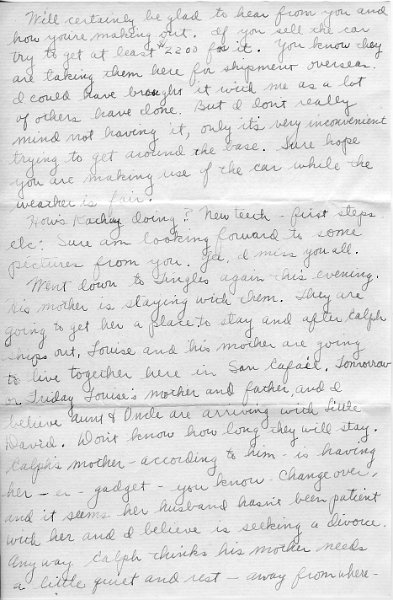 Will certainly be glad to hear from you and
how you're making out. If you sell the car
try to get at least $2200 for it. You know they
are taking them here for shipment overseas.
I could have brought it with me as a lot
of others have done. But I don't really
mind not having it, only it's very inconvenient
trying to get around the base. Sure hope
you are making use of the car while the
weather is fair.
How's Kathy doing? New teeth - first steps
etc. Sure am looking forward to some
pictures from you. Gee, I miss you all.
Went down to Tingles again this evening.
His mother is staying with them. They are
going to get her a place to stay and after Ralph
ships out, Louise and his mother are going
to live together here in San Rafael. Tomorrow
or Friday Louise's mother and father, and I
believe Aunt & Uncle are arriving with little
David. Don't know how long they will stay.
Ralph's mother - according to him - is having
her - a - gadget - you know - change over,
and it seems her husband hasn't been patient
with her and I believe is seeking a divorce.
Anyway Ralph thinks his mother needs
a little quiet and rest - away from where-